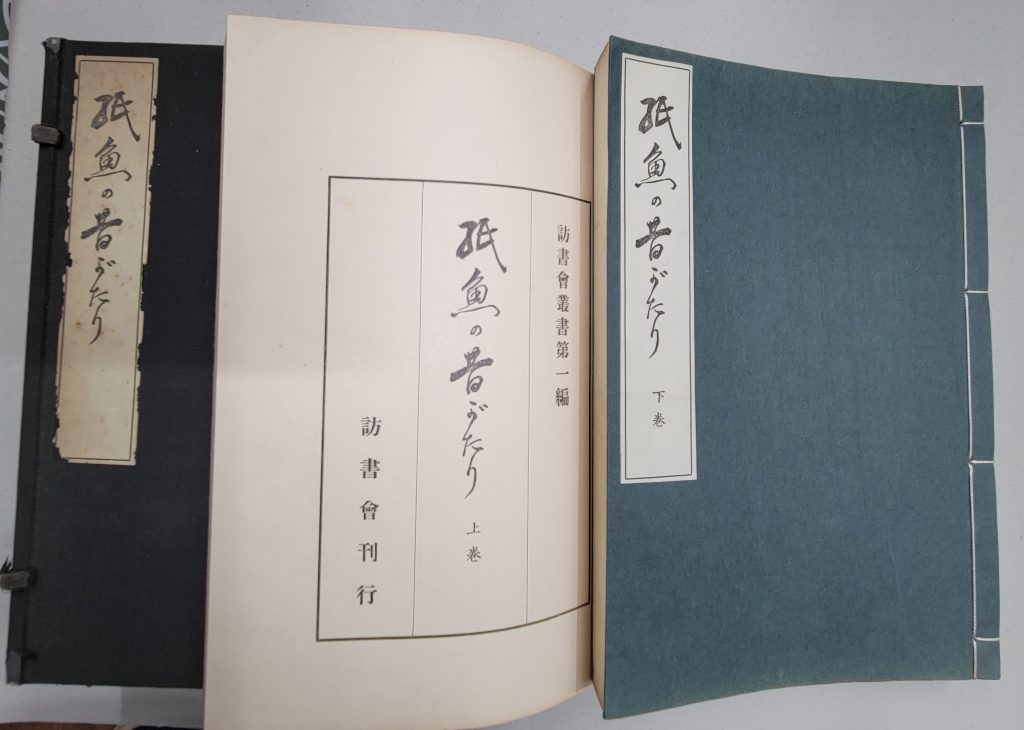 紙魚の昔がたり 下卷
訪書會叢書第一編
紙魚の昔がたり 上卷
訪書會刊行
紙魚の昔がたり